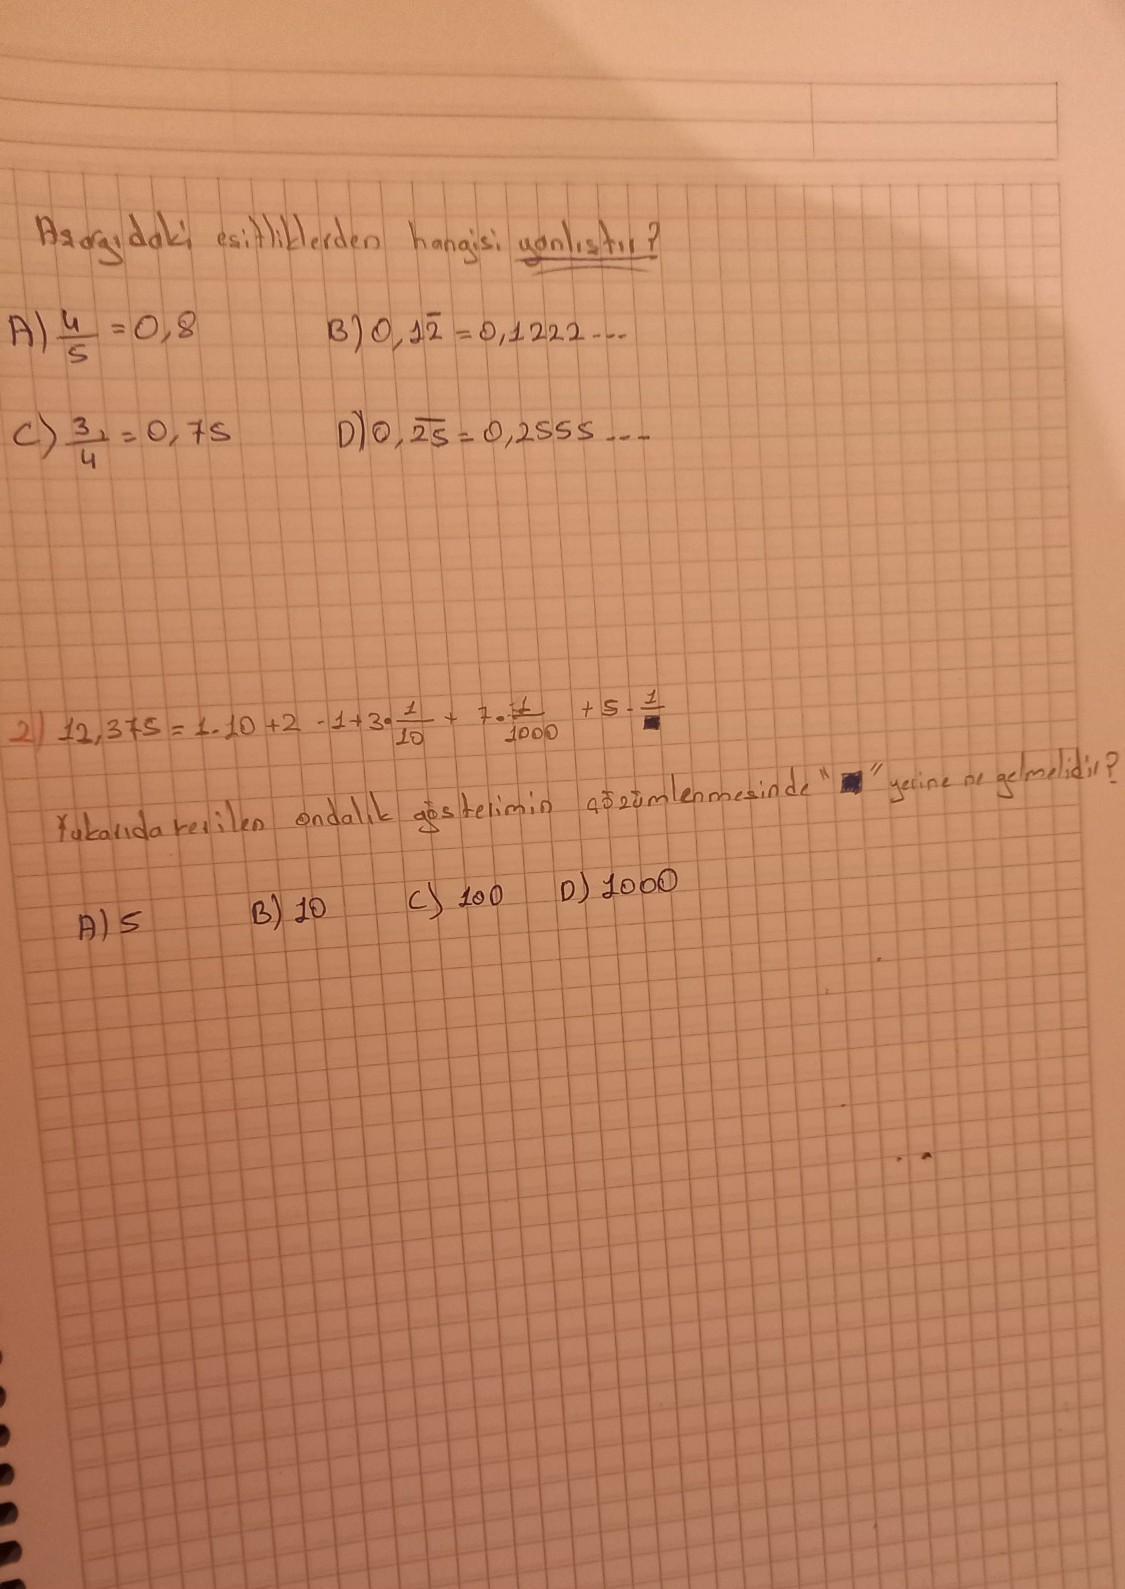 Aşağıdaki eşitliklerden hangisi yanlıştır?
A) 4/5 = 0,8 B) 0,12̅ = 0,1222...
C) 3/4 = 0,75 D) 0,2̅5̅ = 0,2555...
2) 12,375 = 1.10 + 2 . 1 + 3 . 1/10 + 7 . 1/1000 + 5 . 1/■
Yukarıda verilen ondalık gösterimin çözümlenmesinde "■" yerine ne gelmelidir?
A) 5 B) 10 C) 100 D) 1000